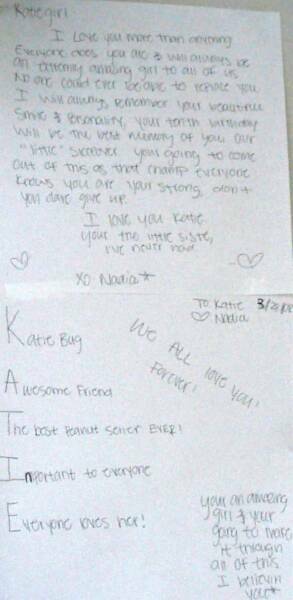 Katiegirl
I love you more than anything
Everyone does you are & will always be
an extremly amazing girl to all of us
No one could ever be able to replace you
I will always remember your beautiful
smile & personality, your tenth birthday
will be the best memory of you. our
"little" sleepover your going to come
out of this as that champ everyone
knows you are your strong, don't
you dare give up.
I love you Katie
your the little sister
I've never had
XO Nadia*
To Katie 3/2
Nadia
We ALL love you!
Forever!
Katie Bug
Awesome Friend
The best Peanut seller EVER!
Important to everyone
Everyone loves her!
your an amazing
girl & your
going to make
it through
all of this
I believe in
you*